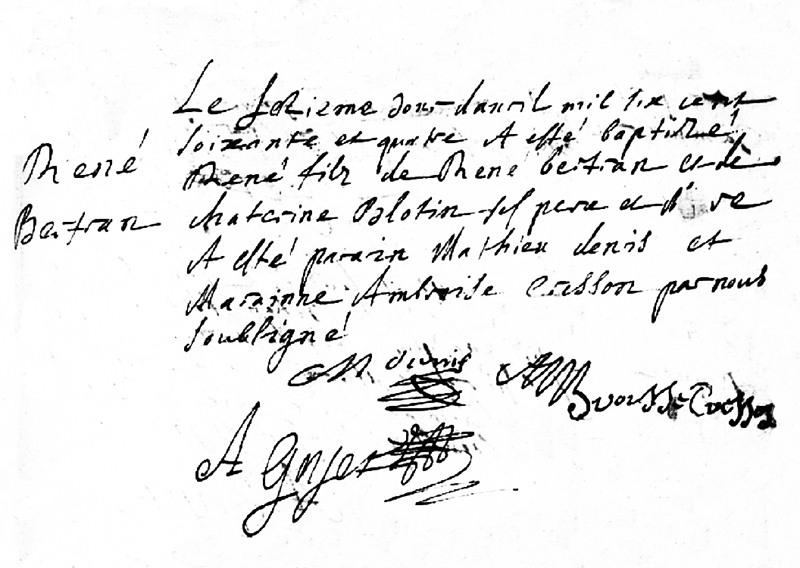 René
Bertran
Le sezieme Jour dauril mil six cent
soixante et quatre A esté baptizé
René filz de René bertran et de
Chaterine Blotin ses pere et
A esté parain Mathieu denis et
Marainne Ambroise Cresson par nous
soubligné
M denis
A